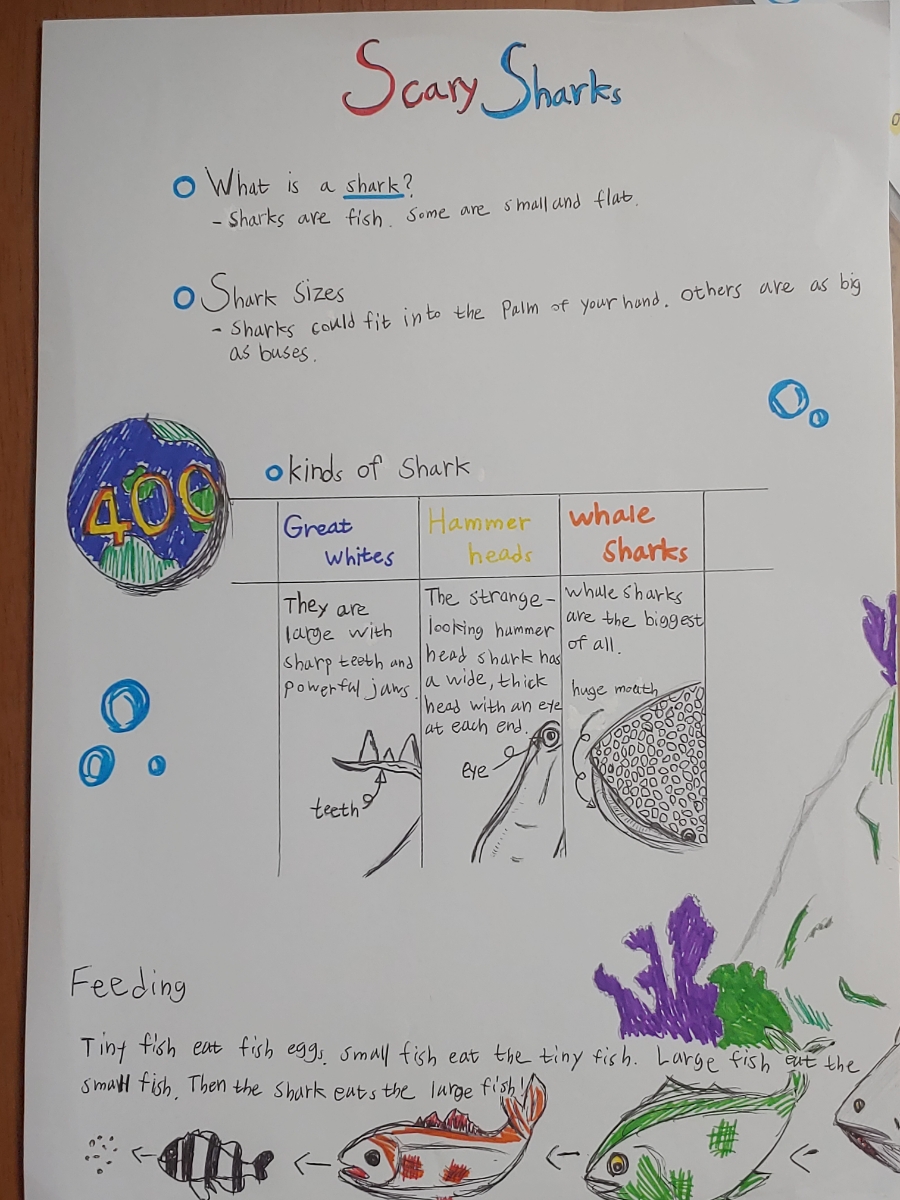 Scary Sharks
What is a shark?
- Sharks are fish. Some are small and flat.
Shark Sizes
- Sharks could fit into the palm of your hand. Others are as big
as buses.
400
kinds of Shark
Great
whites
They are
large with
sharp teeth and
powerful jaws.
teeth
Hammer
heads
The strange-
looking hammer
head shark has
a wide, thick
head with an eye
at each end.
eye
whale
sharks
whale sharks
are the biggest
of all.
huge mouth
Feeding
Tiny fish eat fish eggs. small fish eat the tiny fish. Large fish eat the
small fish. Then the shark eats the large fish!